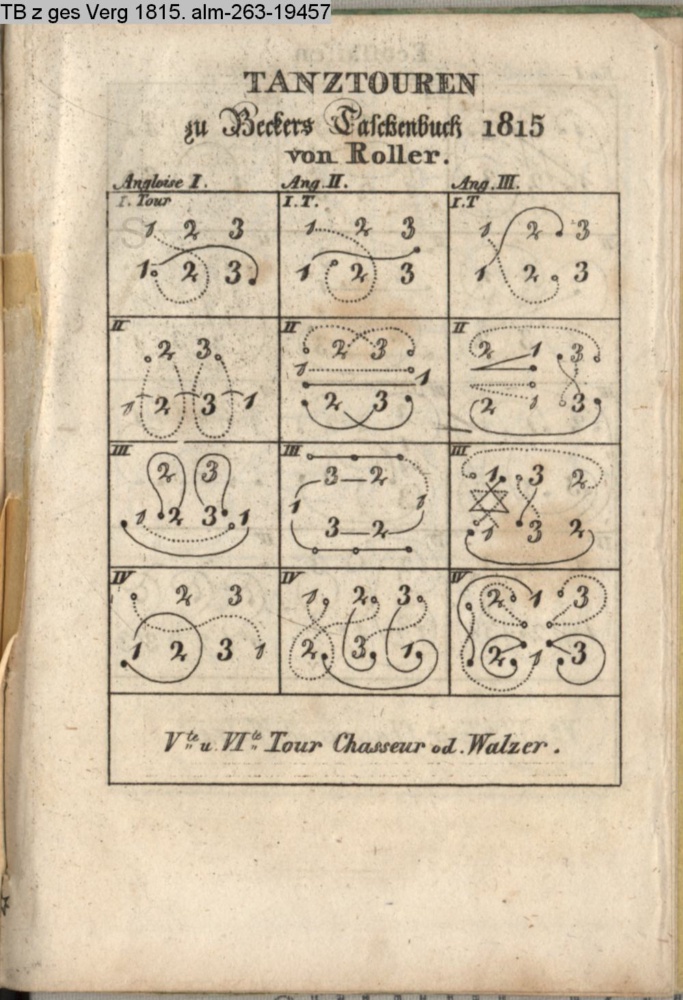 TB z ges Verg 1815. alm-263-19457
TANZTOUREN
zu Beckers Taschenbuch 1815
von Roller.
Angloise I. Ang. II. Ang. III.
I. Tour I. T. I. T
1 2 3 1 2 3 1 2 3
1 2 3 1 2 3 1 2 3
II II II
2 3 2 3 2 1 3
1 1
1 2 3 1 2 3 2 1 3
III III III
2 3 3 2 1 3 2
1 1
1 2 3 1 3 2 1 3 2
IV IV IV
2 3 1 2 3 2 1 3
1 2 3 1 2 3 1 2 1 3
Vte u. VIte Tour Chasseur od. Walzer.